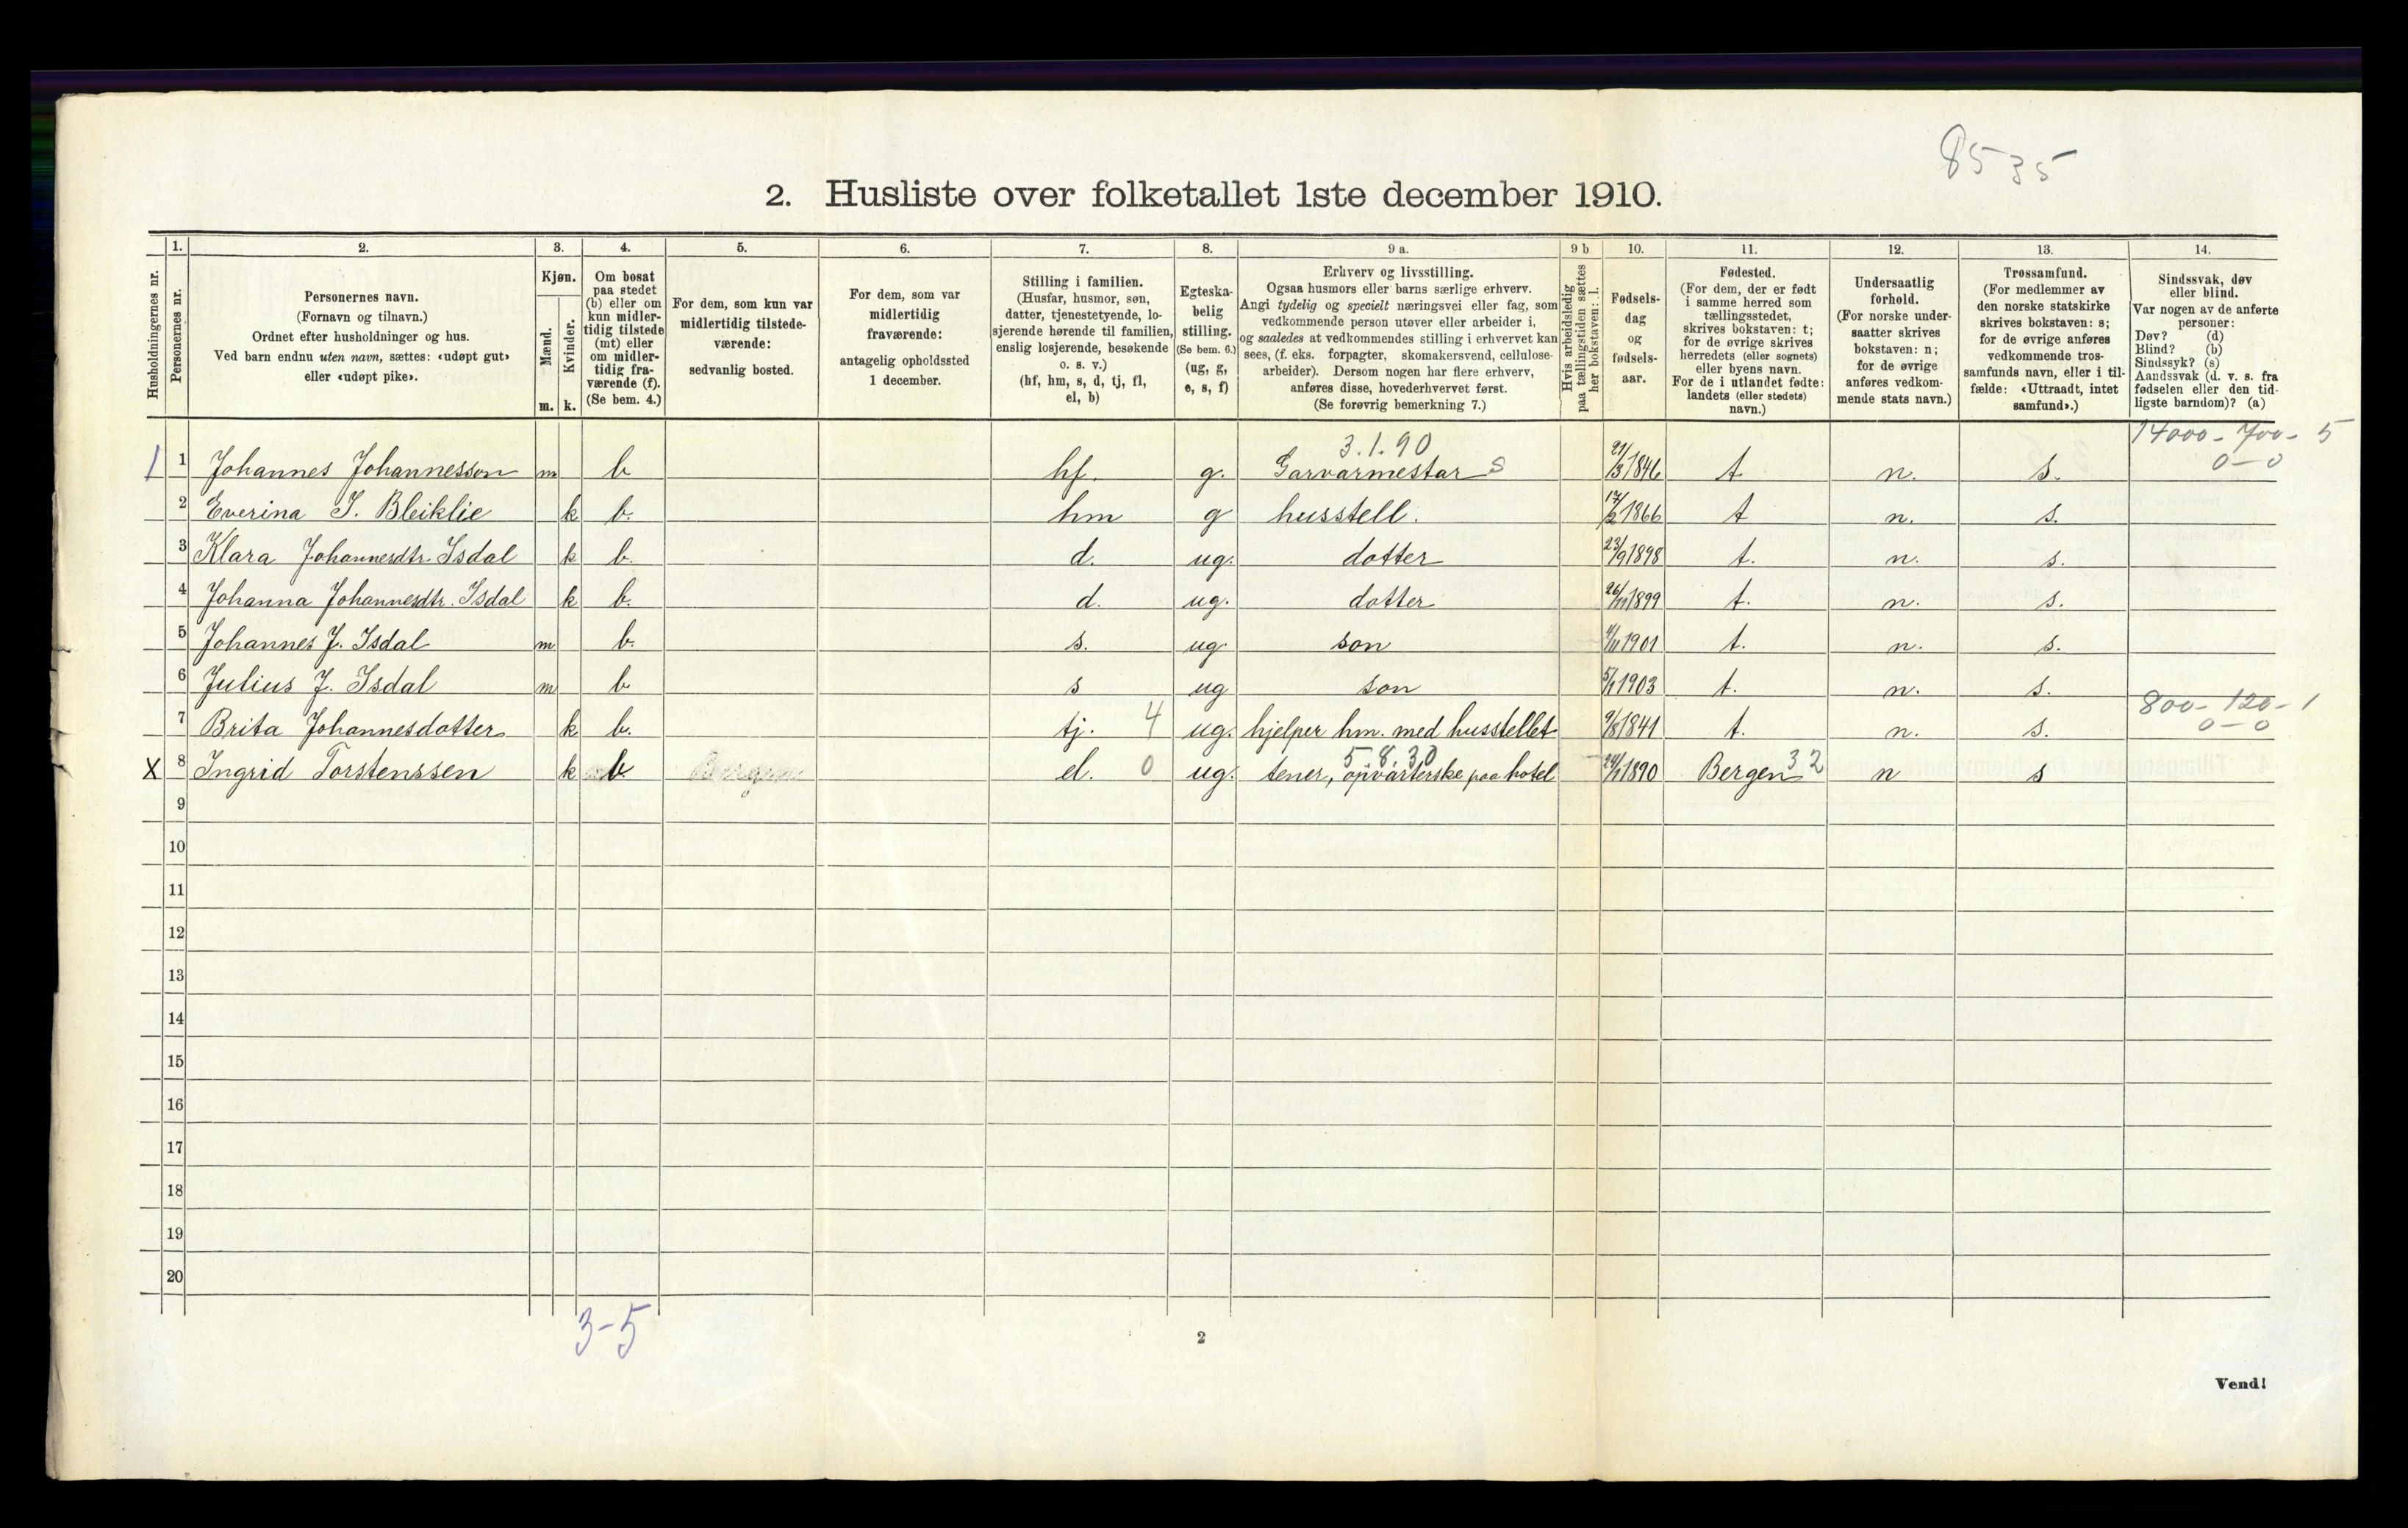 8535
2. Husliste over folketallet 1ste december 1910.
1. 2. 3. 4. 5. 6. 7. 8. 9 a. 9 b 10. 11. 12. 13. 14.
Husholdningernes nr.
Personernes nr.
Personernes navn.
(Fornavn og tilnavn.)
Ordnet efter husholdninger og hus.
Ved barn endnu uten navn, sættes: «udøpt gut»
eller «udøpt pike».
Kjøn.
Mænd.
Kvinder.
m. k.
Om bosat
paa stedet
(b) eller om
kun midler-
tidig tilstede
(mt) eller
om midler-
tidig fra-
værende (f).
(Se bem. 4.)
For dem, som kun var
midlertidig tilstede-
værende:
sedvanlig bosted.
For dem, som var
midlertidig
fraværende:
antagelig opholdssted
1 december.
Stilling i familien.
(Husfar, husmor, søn,
datter, tjenestetyende, lo-
sjerende hørende til familien,
enslig losjerende, besøkende
o. s. v.)
(hf, hm, s, d, tj, fl,
el, b)
Egteska-
belig
stilling.
(Se bem. 6.)
(ug, g,
e, s, f)
Erhverv og livsstilling.
Ogsaa husmors eller barns særlige erhverv.
Angi tydelig og specielt næringsvei eller fag, som
vedkommende person utøver eller arbeider i,
og saaledes at vedkommendes stilling i erhvervet kan
sees, (f. eks. forpagter, skomakersvend, cellulose-
arbeider). Dersom nogen har flere erhverv,
anføres disse, hovederhvervet først.
(Se forøvrig bemerkning 7.)
Hvis arbeidsledig
paa tællingstiden sættes
her bokstaven: l.
Fødsels-
dag
og
fødsels-
aar.
Fødested.
(For dem, der er født
i samme herred som
tællingsstedet,
skrives bokstaven: t;
for de øvrige skrives
herredets (eller sognets)
eller byens navn.
For de i utlandet fødte:
landets (eller stedets)
navn.)
Undersaatlig
forhold.
(For norske under-
saatter skrives
bokstaven: n;
for de øvrige
anføres vedkom-
mende stats navn.)
Trossamfund.
(For medlemmer av
den norske statskirke
skrives bokstaven: s;
for de øvrige anføres
vedkommende tros-
samfunds navn, eller i til-
fælde: «Uttraadt, intet
samfund».)
Sindssvak, døv
eller blind.
Var nogen av de anførte
personer:
Døv? (d)
Blind? (b)
Sindssyk? (s)
Aandssvak (d. v. s. fra
fødselen eller den tid-
ligste barndom)? (a)
3.1.90 14000-700-5
1 1 Johannes Johannesson m b hf. g. Garvarmestar s 21/3 1846 t n. s. 0-0
2 Everina I. Bleiklie k b. hm g husstell. 17/2 1866 t n. s.
3 Klara Johannesdtr. Isdal k b. d. ug. dotter 23/9 1898 t. n. s.
4 Johanna Johannesdtr. Isdal k b. d. ug. dotter 26/11 1899 t. n. s.
5 Johannes J. Isdal m b. s. ug. son 1901 t. n. s.
6 Julius J. Isdal m b s ug son 5/1 1903 t. n. s.
800-120-1
7 Brita Johannesdotter k b. tj. 4 ug. hjelper hm. med husstellet 9/8 1841 t. n. s. 0-0
5 8 30
X 8 Ingrid Torstenssen k b Bergen el. 0 ug. tener, opvarterske paa hotel 24/1 1890 Bergen 32 n s
9
10
11
12
13
14
15
16
17
18
19
20
3-5
2
Vend!